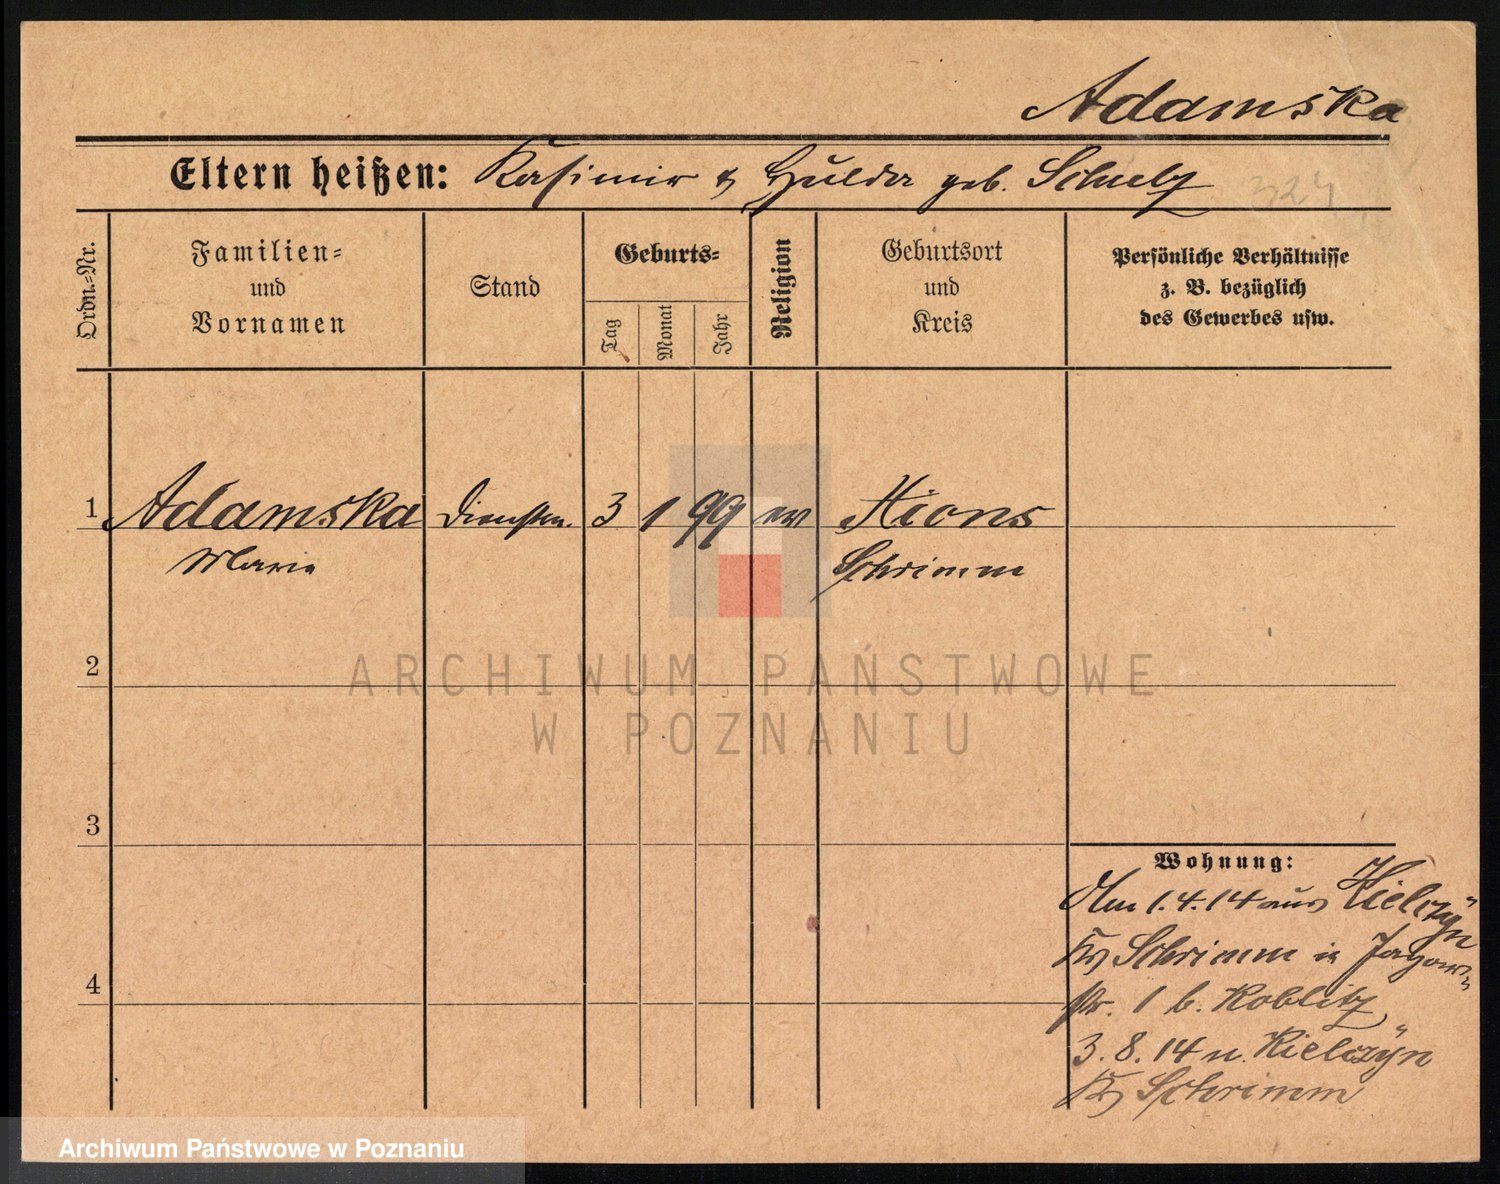 Adamska
Eltern heißen: Kasimir & Hulda geb. Schulz
324
Ordn.-Nr.
Familien-
und
Vornamen
Stand
Geburts-
Tag
Monat
Jahr
Religion
Geburtsort
und
Kreis
Persönliche Verhältnisse
z. B. bezüglich
des Gewerbes usw.
1 Adamska Dienstm. 3 1 99 ev Xions
Marie Schrimm
2
ARCHIWUM PAŃSTWOWE
W POZNANIU
3
Wohnung:
Am 1.4.14 aus Kielczÿn
Kr Schrimm in Jagow-
str. 1 b. Koblitz
4
3.8.14 n. Kielczÿn
Kr Schrimm
Archiwum Państwowe w Poznaniu